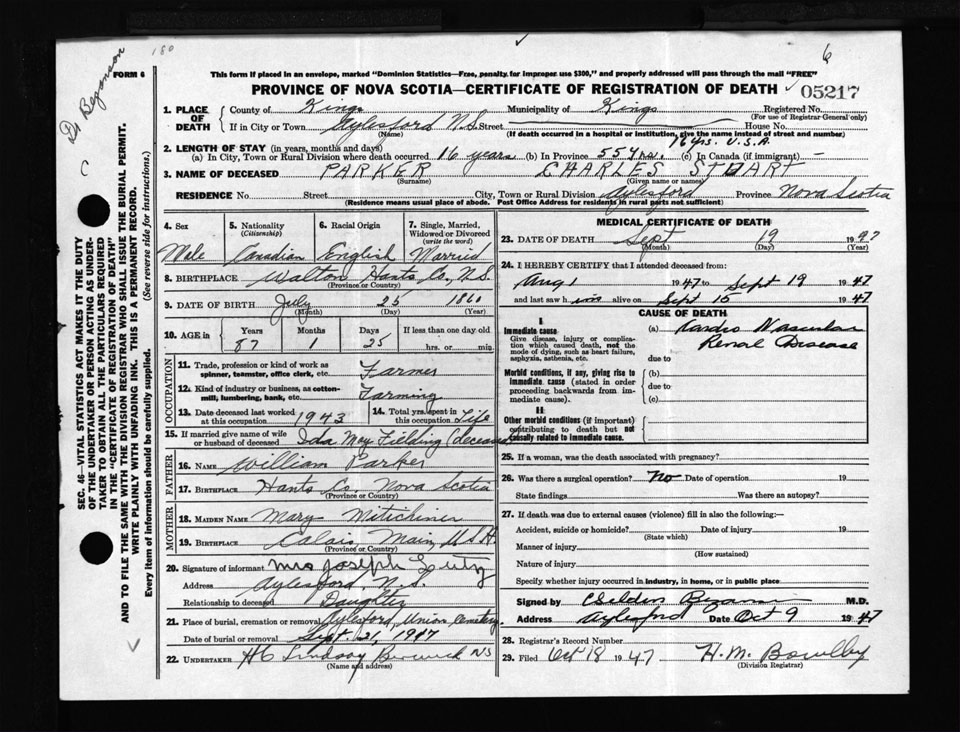 180
6
Dr Bezanson
C
FORM 6
This form if placed in an envelope, marked "Dominion Statistics—Free, penalty for improper use $300," and properly addressed will pass through the mail "FREE"
PROVINCE OF NOVA SCOTIA—CERTIFICATE OF REGISTRATION OF DEATH
05217
SEC. 46—VITAL STATISTICS ACT MAKES IT THE DUTY
OF THE UNDERTAKER OR PERSON ACTING AS UNDER-
TAKER TO OBTAIN ALL THE PARTICULARS REQUIRED
IN THE "CERTIFICATE OF REGISTRATION OF DEATH"
AND TO FILE THE SAME WITH THE DIVISION REGISTRAR WHO SHALL ISSUE THE BURIAL PERMIT.
WRITE PLAINLY WITH UNFADING INK. THIS IS A PERMANENT RECORD.
Every item of information should be carefully supplied. (See reverse side for instructions.)
1. PLACE OF DEATH
County of Kings Municipality of Kings Registered No.
(For use of Registrar-General only)
If in City or Town Aylesford N.S. Street House No.
(Name) (If death occurred in a hospital or institution, give the name instead of street and number)
2. LENGTH OF STAY (in years, months and days) 16 yrs. U.S.A.
(a) In City, Town or Rural Division where death occurred 16 years (b) In Province 55 yrs. (c) In Canada (if immigrant) —
3. NAME OF DECEASED PARKER CHARLES STUART
(Surname) (Given name or names)
RESIDENCE No. Street City, Town or Rural Division Aylesford Province Nova Scotia
(Residence means usual place of abode. Post Office Address for residents in rural parts not sufficient)
4. Sex 5. Nationality (Citizenship) 6. Racial Origin 7. Single, Married, Widowed or Divorced (write the word)
Male Canadian English Married
8. BIRTHPLACE Walton Hants Co, N.S.
(Province or Country)
9. DATE OF BIRTH July 25 1860
(Month) (Day) (Year)
10. AGE in Years Months Days If less than one day old
87 1 25 hrs. or min.
OCCUPATION
11. Trade, profession or kind of work as spinner, teamster, office clerk, etc. Farmer
12. Kind of industry or business, as cotton-mill, lumbering, bank, etc. Farming
13. Date deceased last worked at this occupation 1943 14. Total yrs. spent in Life
15. If married give name of wife or husband of deceased Ida May Fielding (deceased
FATHER
16. NAME William Parker
17. BIRTHPLACE Hants Co. Nova Scotia
(Province or Country)
MOTHER
18. MAIDEN NAME Mary Mitichiner
19. BIRTHPLACE Calais Main, U.S.A.
(Province or Country)
20. Signature of informant Mrs Joseph Lutz
Address Aylesford, N.S.
Relationship to deceased Daughter
21. Place of burial, cremation or removal Aylesford, Union Cemetery
Date of burial or removal Sept. 21, 1947
22. UNDERTAKER HC Lindsay Berwick NS
(Name and address)
MEDICAL CERTIFICATE OF DEATH
23. DATE OF DEATH Sept 19 1947
(Month) (Day) (Year)
24. I HEREBY CERTIFY that I attended deceased from
Aug 1 1947 to Sept 19 1947
and last saw him alive on Sept 15 1947
CAUSE OF DEATH
I.
Immediate cause
Give disease, injury or complication which caused death, not the mode of dying, such as heart failure, asphyxia, asthenia, etc.
(a) Kardio Vascular
Renal Disease
due to
Morbid conditions, if any, giving rise to immediate cause (stated in order proceeding backwards from immediate cause).
(b)
due to
(c)
II
Other morbid conditions (if important) contributing to death but not causally related to immediate cause.
25. If a woman, was the death associated with pregnancy?
26. Was there a surgical operation? No Date of operation 19
State findings Was there an autopsy?
27. If death was due to external causes (violence) fill in also the following:—
Accident, suicide or homicide? Date of injury 19
(State which)
Manner of injury
(How sustained)
Nature of injury
Specify whether injury occurred in industry, in home, or in public place
Signed by M.D.
Address Aylesford Date Oct 9 1947
28. Registrar's Record Number
29. Filed Oct 18 1947 H.M. Bowlby
(Division Registrar)